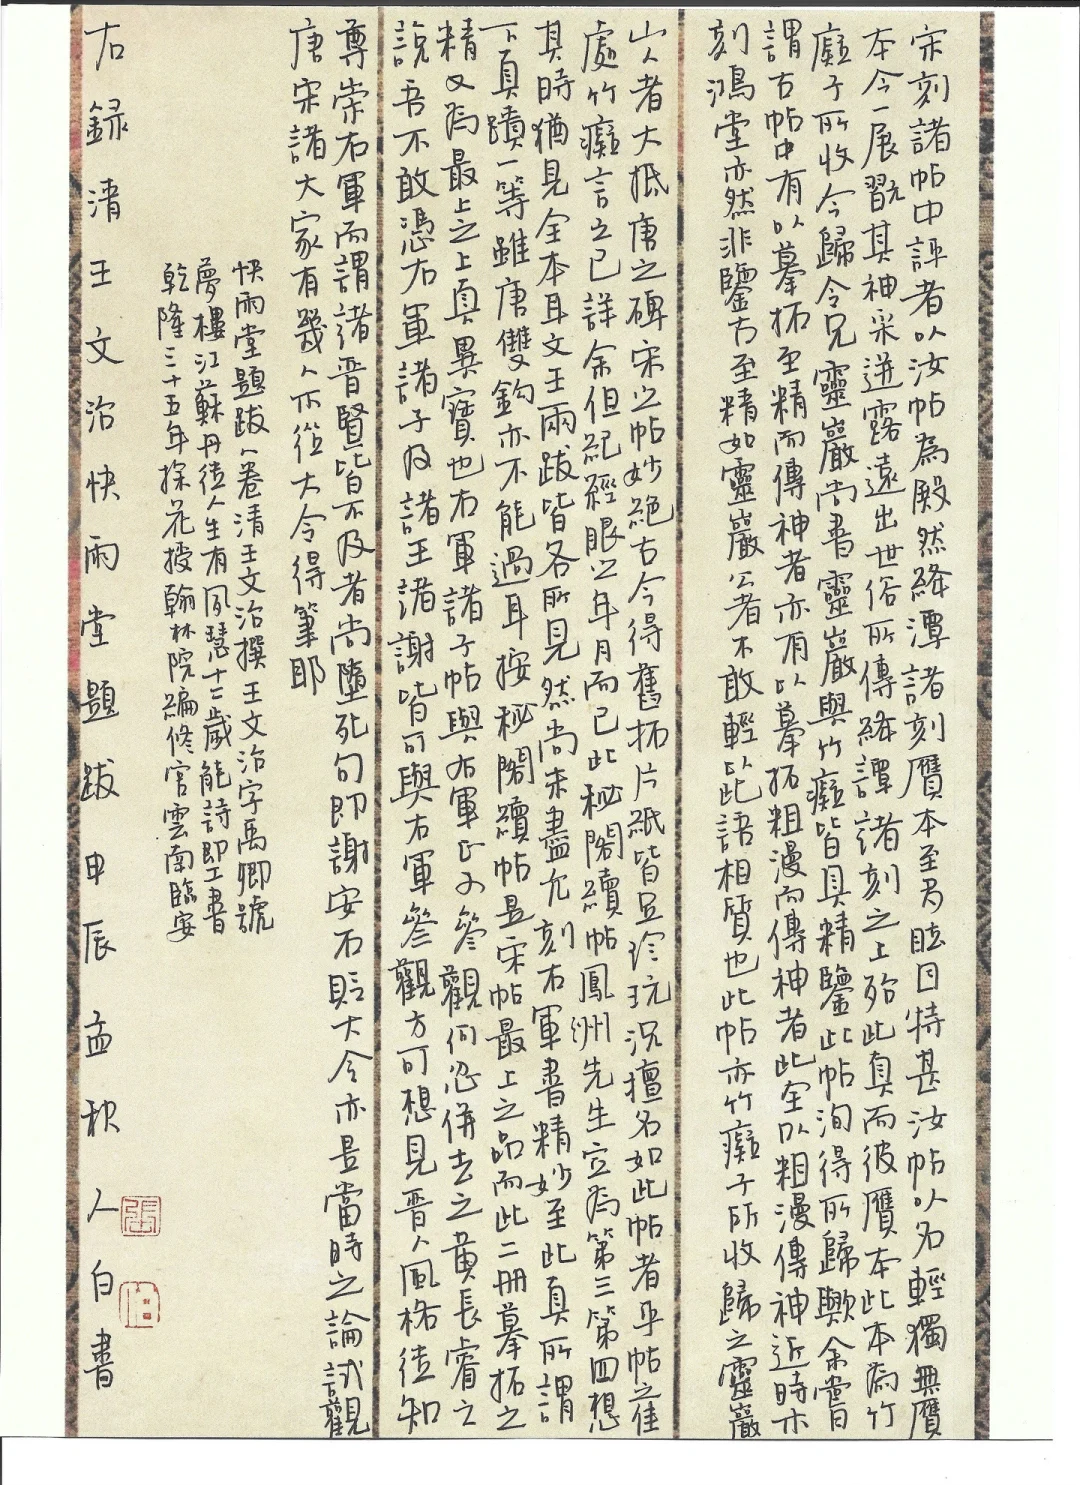 宋刻諸帖中評者以汝帖為殿然絳潭諸刻贗本至為眩目特甚汝帖以名輕獨無贗
本今一展翫其神采迸露遠出世俗所傳絳譚諸刻之上殆此真而彼贗本此本為竹
癡子所收今歸令兄靈巖尚書靈巖與竹癡皆具精鑒此帖洵得所歸歟余嘗
謂古帖中有以摹拓至精而傳神者亦有以摹拓粗漫而傳神者此全以粗漫傳神近時
刻鴻堂亦然非鑒古至精如靈巖公者不敢輕以此語相質也此帖亦竹癡子所收歸之靈巖
山人者大抵唐之碑宋之帖妙絕古今得舊拓片紙皆足珍玩況擅名如此帖者乎帖之
處竹癡言之已詳余但紀經眼之年月而已此秘閣續帖鳳洲先生定為第三第四想
其時猶見全本耳文王兩跋皆各所見然尚未盡允刻右軍書精妙至此真所謂
下真蹟一等雖唐雙鉤亦不能過耳按秘閣續帖是宋帖最上之品而此二冊摹拓之
精又為最上之上真異寶也右軍諸子帖與右軍正可參觀何忍併去之黃長睿之
說吾不敢憑右軍諸子及諸王諸謝皆可與右軍參觀方可想見晉人風格徒知
尊崇右軍而謂諸晉賢皆不及者尚墮死句即謝安石貽大令亦是當時之論試觀
唐宋諸大家有幾人不從大令得筆耶
快雨堂題跋八卷清王文治撰王文治字禹卿號
夢樓江蘇丹徒人生有夙慧十二歲能詩即工書
乾隆三十五年探花授翰林院編修官雲南臨安
右錄清王文治快雨堂題跋甲辰孟秋人白書